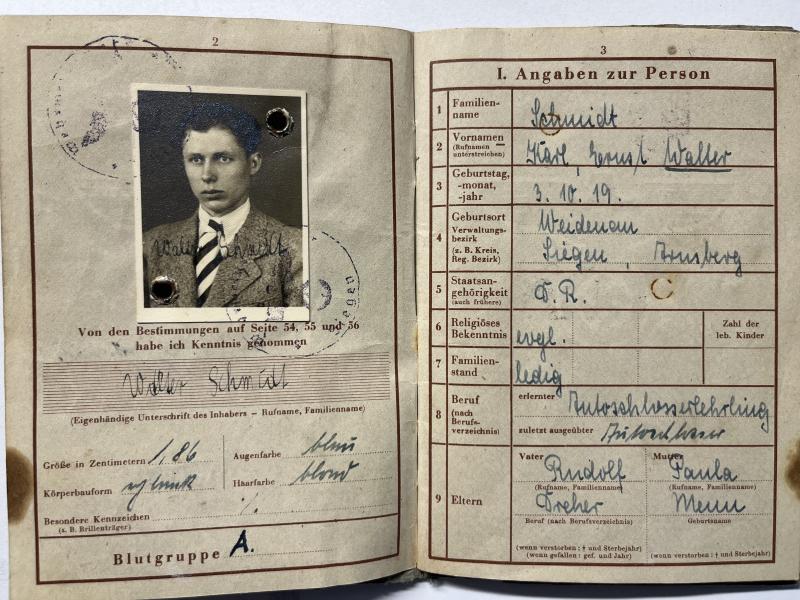 2
Walter Schmidt
Siegen
Von den Bestimmungen auf Seite 54, 55 und 56
habe ich Kenntnis genommen
Walter Schmidt
(Eigenhändige Unterschrift des Inhabers – Rufname, Familienname)
Größe in Zentimetern 1,86
Augenfarbe blau
Körperbauform schlank
Haarfarbe blond
Besondere Kennzeichen ·/.
(z. B. Brillenträger)
Blutgruppe A.
3
I. Angaben zur Person
1 Familien-
name Schmidt
2 Vornamen
(Rufnamen
unterstreichen) Karl, Ernst Walter
3 Geburtstag,
-monat,
-jahr 3. 10. 19.
4 Geburtsort Weidenau
Verwaltungs-
bezirk
(z. B. Kreis,
Reg. Bezirk) Siegen, Arnsberg
5 Staatsan-
gehörigkeit D. R.
(auch frühere)
6 Religiöses
Bekenntnis evgl.
Zahl der
leb. Kinder
7 Familien-
stand ledig
8 Beruf
(nach
Berufs-
verzeichnis)
erlernter Autoschlosserlehrling
zuletzt ausgeübter Autoschlosser
9 Eltern
Vater Rudolf
(Rufname, Familienname)
Dreher
Beruf (nach Berufsverzeichnis)
(wenn verstorben: † und Sterbejahr)
(wenn gefallen: gef. und Jahr)
Mutter Paula
(Rufname, Familienname)
Menn
Geburtsname
(wenn verstorben: † und Sterbejahr)